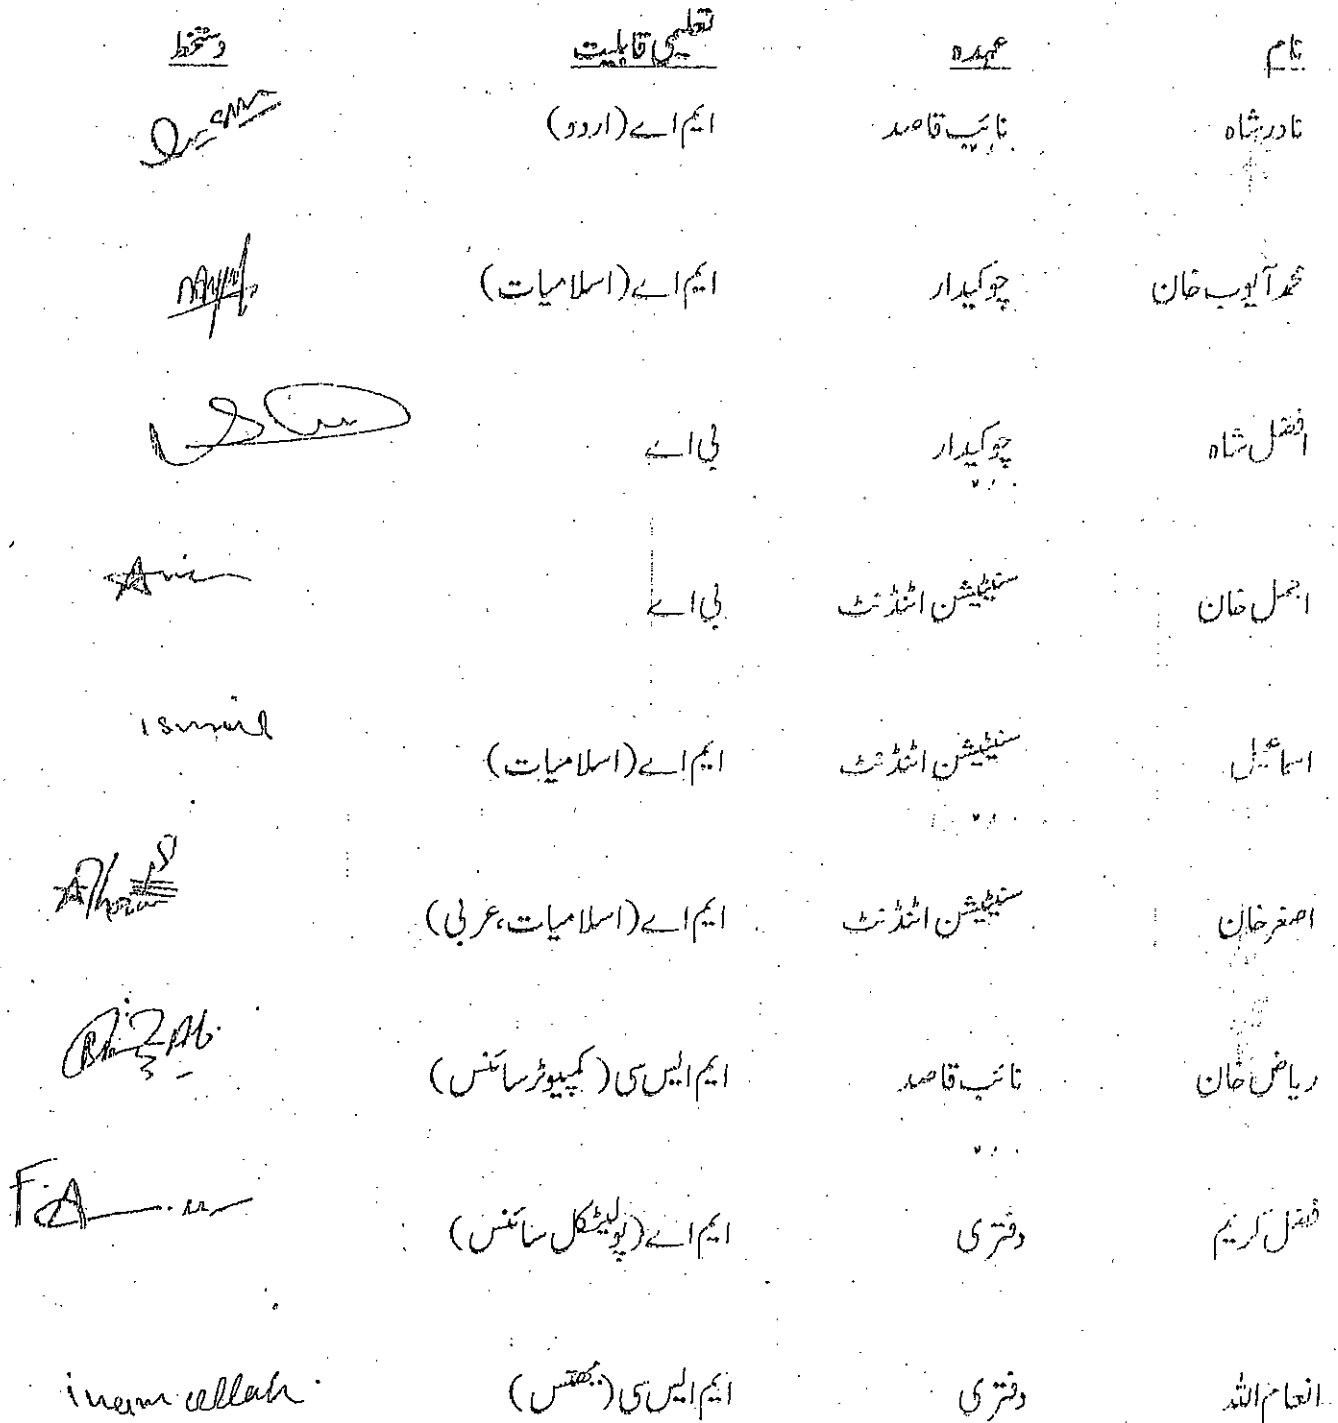 نام عہدہ تعلیمی قابلیت دستخط
نادر شاہ نائب قاصد ایم اے (اردو)
محمد آیوب خان چوکیدار ایم اے (اسلامیات)
افضل شاہ چوکیدار بی اے
اجمل خان سنیٹیشن اٹنڈنٹ بی اے
اسماعیل سنیٹیشن اٹنڈنٹ ایم اے (اسلامیات) ismail
اصغر خان سنیٹیشن اٹنڈنٹ ایم اے (اسلامیات، عربی)
ریاض خان نائب قاصد ایم ایس سی (کمپیوٹر سائنس)
فضل کریم دفتری ایم اے (پولیٹکل سائنس)
انعام اللہ دفتری ایم ایس سی (میتھس) inam ullah